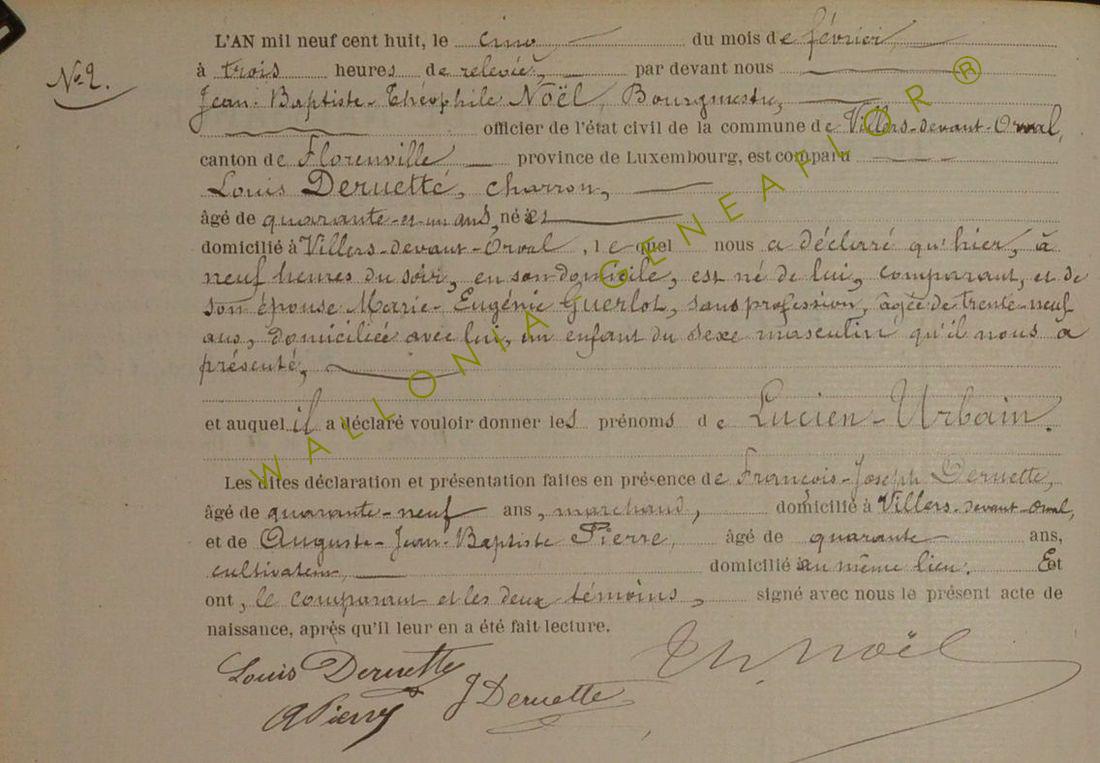 L'AN mil neuf cent huit, le cinq du mois de février,
No 2.
à trois heures de relevée, par devant nous
Jean-Baptiste-Théophile Noël, Bourgmestre,
officier de l'état civil de la commune de Villers-devant-Orval,
canton de Florenville province de Luxembourg, est comparu
Louis Deruette, charron,
âgé de quarante-et-un ans, né
domicilié à Villers-devant-Orval, lequel nous a déclaré qu'hier, à
neuf heures du soir, en son domicile, est né de lui, comparant, et de
son épouse Marie-Eugénie Guerlot, sans profession, âgée de trente-neuf
ans, domiciliée avec lui, un enfant du sexe masculin qu'il nous a
présenté,
et auquel il a déclaré vouloir donner les prénoms de Lucien-Urbain.
Les dites déclaration et présentation faites en présence de François-Joseph Deruette,
âgé de quarante-neuf ans, marchand, domicilié à Villers-devant-Orval,
et de Auguste-Jean-Baptiste Pierre, âgé de quarante ans,
cultivateur, domicilié au même lieu. Et
ont, le comparant et les deux témoins, signé avec nous le présent acte de
naissance, après qu'il leur en a été fait lecture.
Louis Deruette Th. Noël
APierre J Deruette
WALLONIA GENEAFLOR ®